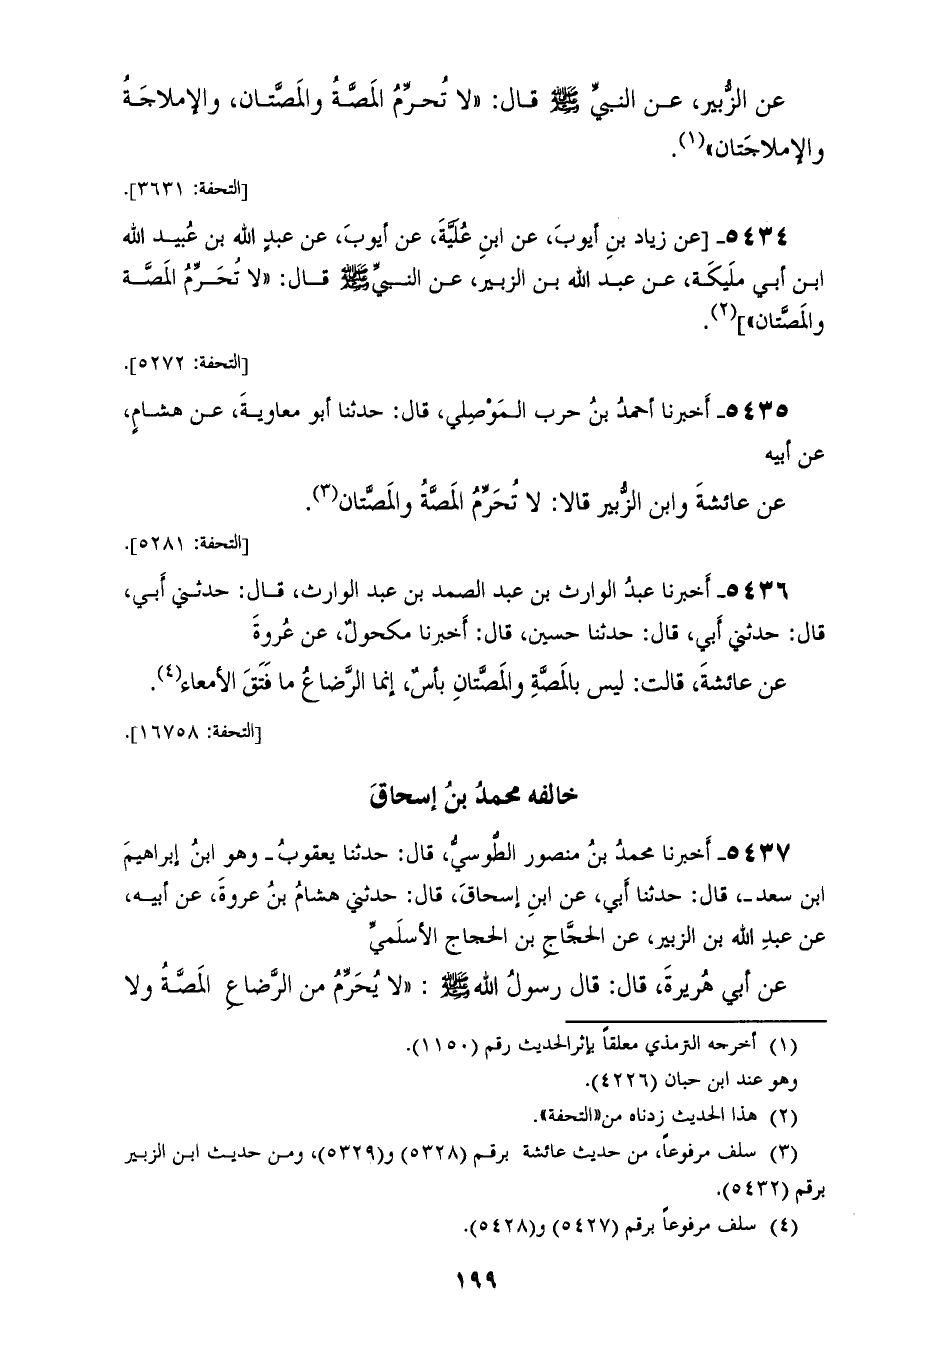 عن الزُّبير، عن النبيِّ ﷺ قال: «لا تُحرِّمُ المَصَّةُ والمَصَّتان، والإملاجَةُ
والإملاجَتان»(١).
[التحفة: ٣٦٣١].
٥٤٣٤ـ [عن زياد بنِ أيوبَ، عن ابنِ عُلَيَّةَ، عن أيوبَ، عن عبدِ الله بن عُبيد الله
ابن أبي ملَيكَة، عن عبد الله بن الزبير، عن النبيِّ ﷺ قال: «لا تُحَرِّمُ المَصَّة
والمَصَّتان»](٢).
[التحفة: ٥٢٧٢].
٥٤٣٥ـ أَخبرنا أحمدُ بنُ حرب المَوْصِلي، قال: حدثنا أبو معاويةَ، عن هشامٍ،
عن أبيه
عن عائشةَ وابن الزُّبير قالا: لا تُحَرِّمُ المَصَّةُ والمَصَّتان(٣).
[التحفة: ٥٢٨١].
٥٤٣٦ـ أَخبرنا عبدُ الوارث بن عبد الصمد بن عبد الوارث، قال: حدثني أَبي،
قال: حدثني أَبي، قال: حدثنا حسين، قال: أَخبرنا مكحولٌ، عن عُروةَ
عن عائشةَ، قالت: ليس بالمَصَّةِ والمَصَّتانِ بأسٌ، إنما الرَّضاعُ ما فَتَقَ الأمعاء(٤).
[التحفة: ١٦٧٥٨].
خالفه محمدُ بنُ إسحاقَ
٥٤٣٧ـ أَخبرنا محمدُ بنُ منصور الطُّوسيُّ، قال: حدثنا يعقوبُ ـ وهو ابنُ إبراهيمَ
ابن سعد ـ، قال: حدثنا أَبي، عن ابنِ إسحاقَ، قال: حدثني هشامُ بنُ عروةَ، عن أبيه،
عن عبدِ الله بن الزبير، عن الحجَّاجِ بن الحجاج الأسلَميِّ
عن أبي هُريرةَ، قال: قال رسولُ الله ﷺ : «لا يُحَرِّمُ من الرَّضاعِ المَصَّةُ ولا
(١) أخرجه الترمذي معلقاً بإثر الحديث رقم (١١٥٠).
وهو عند ابن حبان (٤٢٢٦).
(٢) هذا الحديث زدناه من «التحفة».
(٣) سلف مرفوعاً، من حديث عائشة برقم (٥٣٢٨) و(٥٣٢٩)، ومن حديث ابن الزبير
برقم (٥٤٣٢).
(٤) سلف مرفوعاً برقم (٥٤٢٧) و(٥٤٢٨).
١٩٩